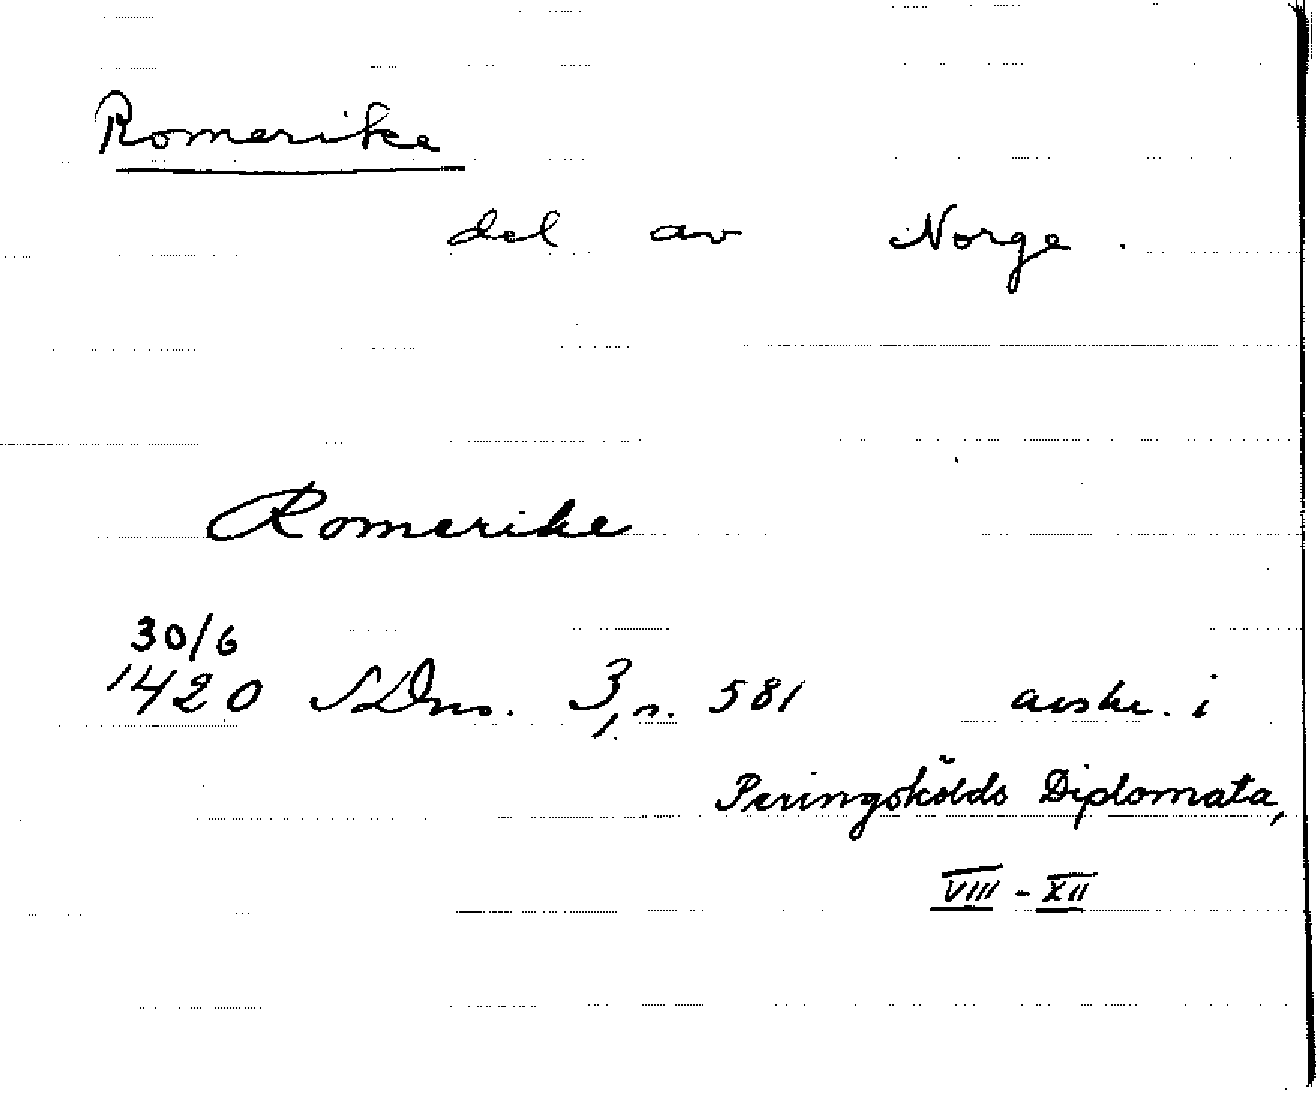 Romerike
del av Norge.
Romerike
30/6
1420 SDns. 3, n. 581 avskr. i
Peringskölds Diplomata,
VIII - XII